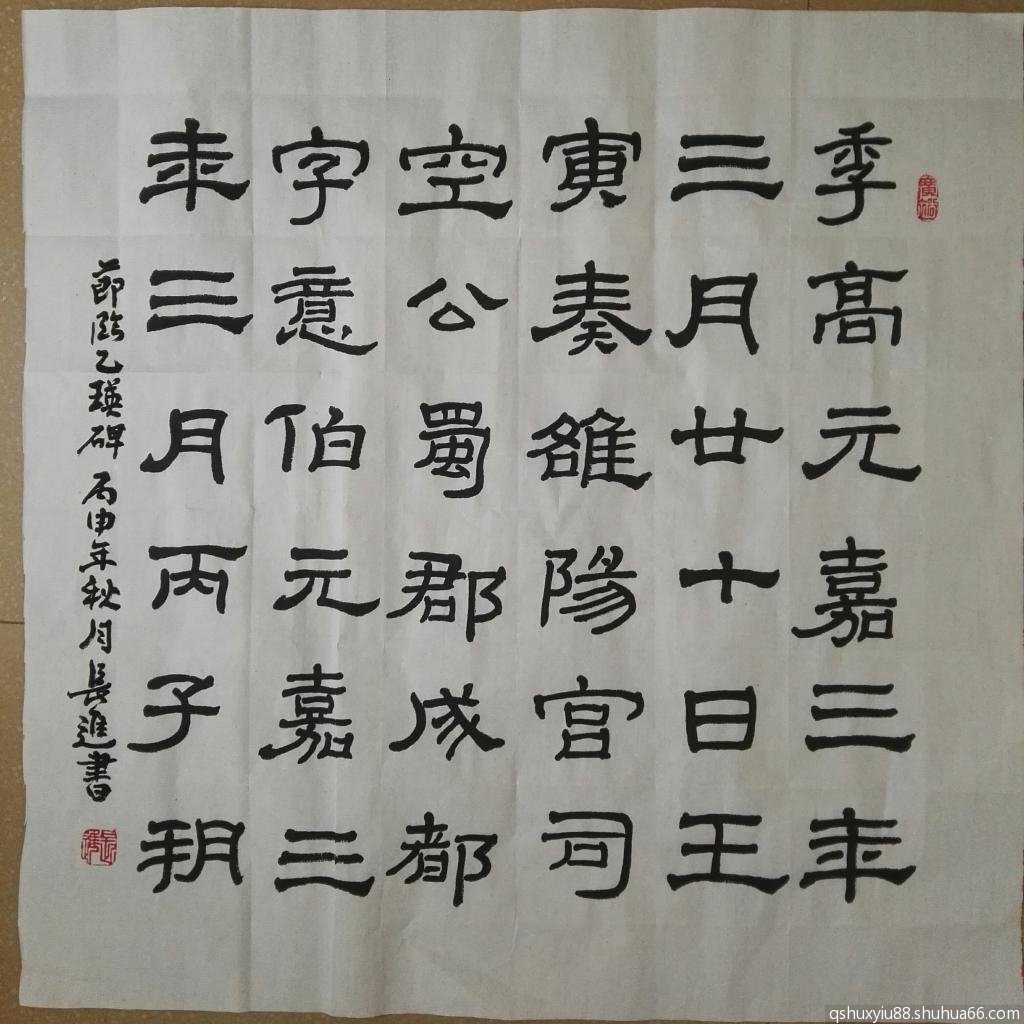 季高元嘉三年
三月廿十日王
寅奏雒陽宮司
空公蜀郡成都
字意伯元嘉三
年三月丙子朔
節臨乙瑛碑 丙申年秋月長進書
qshuxyiu88.shuhua66.com